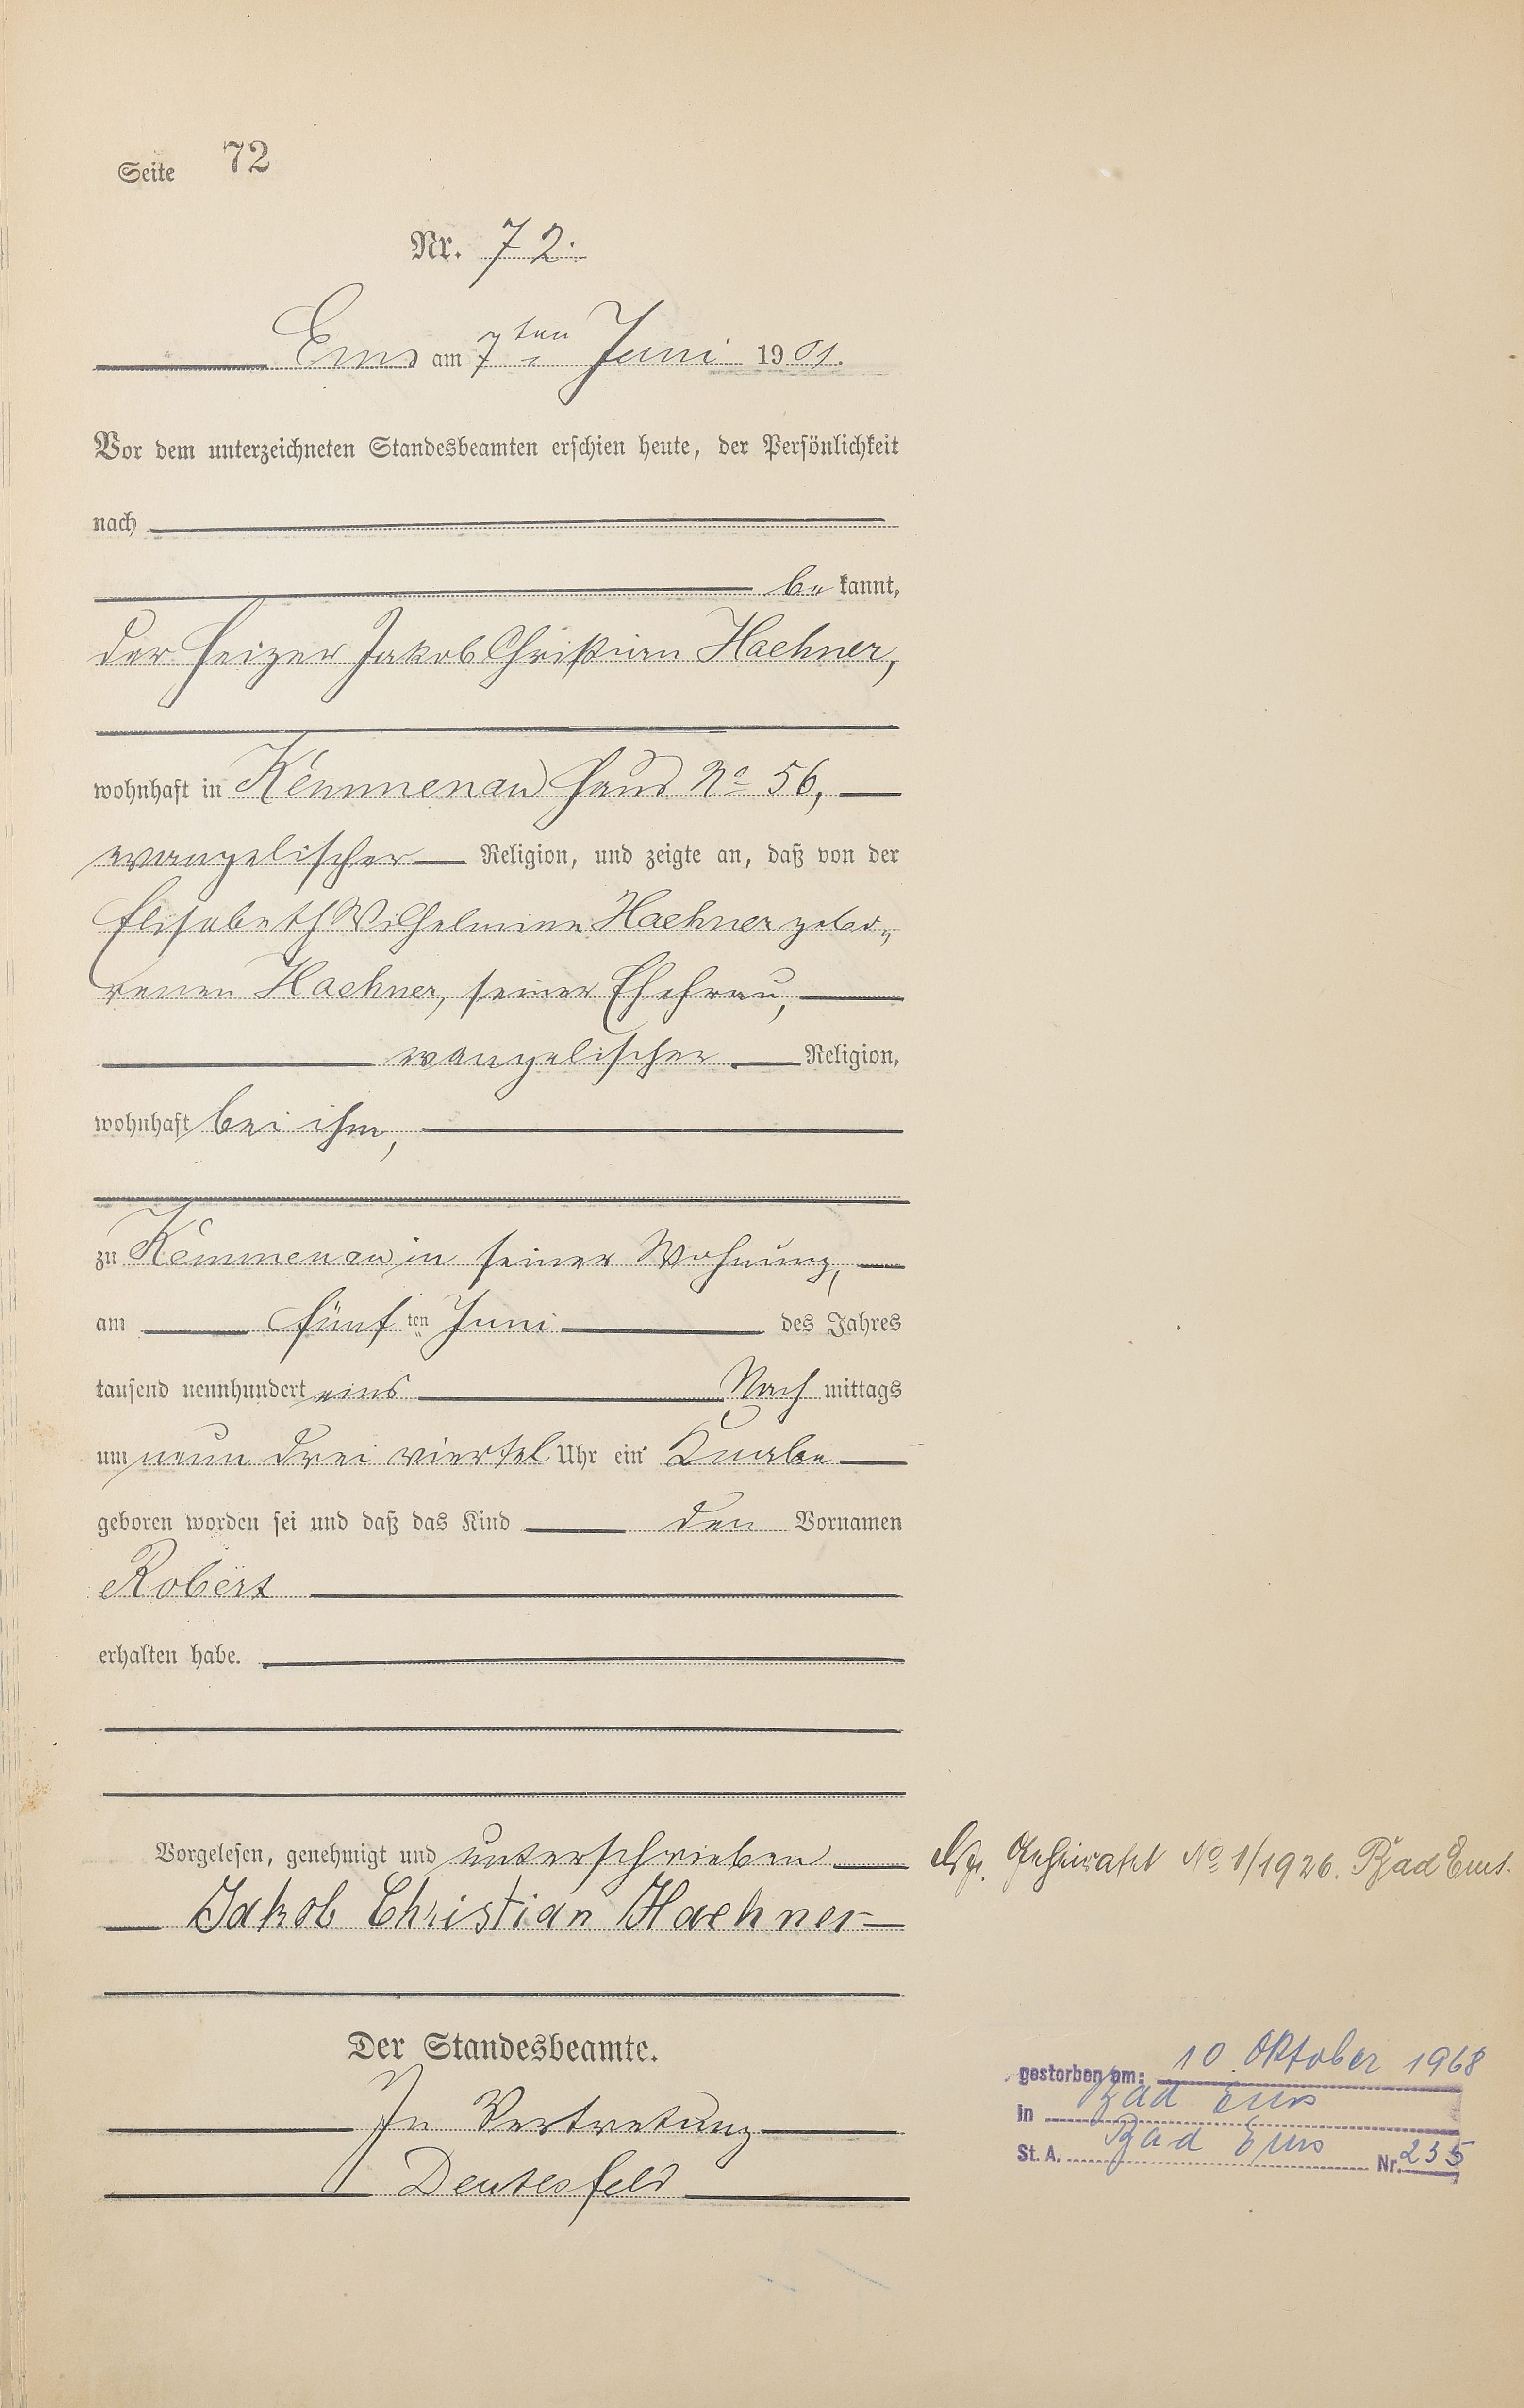 Seite 72
Nr. 72.
Ems am 7ten Juni 1901.
Vor dem unterzeichneten Standesbeamten erschien heute, der Persönlichkeit
nach
bekannt,
der Heizer Jakob Christian Haehner,
wohnhaft in Kemmenau Haus No 56,
evangelischer Religion, und zeigte an, daß von der
Elisabeth Wilhelmine Haehner gebo„
renen Haehner, seiner Ehefrau,
evangelischer Religion,
wohnhaft bei ihm,
zu Kemmenau in seiner Wohnung,
am fünften Juni des Jahres
tausend neunhundert eins Nachmittags
um neun drei viertel Uhr ein Knabe
geboren worden sei und daß das Kind den Vornamen
Robert
erhalten habe.
Vorgelesen, genehmigt und unterschrieben
Jakob Christian Haehner
Der Standesbeamte.
In Vertretung
Deutesfeld
Geheiratet No 1/1926. Bad Ems.
gestorben am: 10. Oktober 1968
in Bad Ems
St. A. Bad Ems Nr. 235